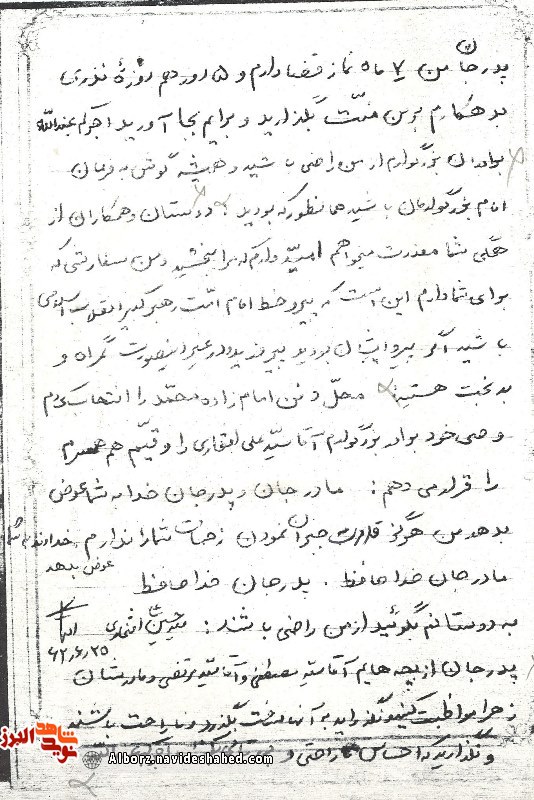 پدر جان من ۷ ماه نماز قضا دارم و ۵ روز هم روزهٔ نذری
بدهکارم بر من منّت بگذارید و برایم بجا آورید اجرکم عندالله
برادران بزرگوارم از من راضی باشید و همیشه گوش به فرمان
امام بزرگوارمان باشید همانطور که بودید دوستان و همکاران از
همگی شما معذرت میخواهم امید دارم که مرا ببخشید و من سفارشی که
برای شما دارم این است که پیرو خط امام امّت رهبر کبیر انقلاب اسلامی
باشید اگر پیرو ایشان بودید پیروزید و در غیر اینصورت گمراه و
بدبخت هستید محل دفن امام زاده محمّد را انتخاب کردم
وصی خود برادر بزرگوارم آقا سیّد علی را و قیّم همسرم
را قرار می دهم : مادر جان و پدر جان خدا به شما عوض
بدهد من هرگز قدرت جبران نمودن زحمات شما را ندارم خداوند به شما
عوض بدهد
مادر جان خداحافظ . پدر جان خداحافظ
به دوستانم بگوئید از من راضی باشند :
۶۲,۶,۲۵
پدر جان از بچه هایم آقا سیّد مصطفی و آقا سیّد مرتضی و مادرشان
زهرا مواظبت کنید نگذارید به آنها سخت بگذرد و ناراحت باشند
و نگذارید که احساس ناراحتی و
نوید شاهد البرز
Alborz.navideshahed.com